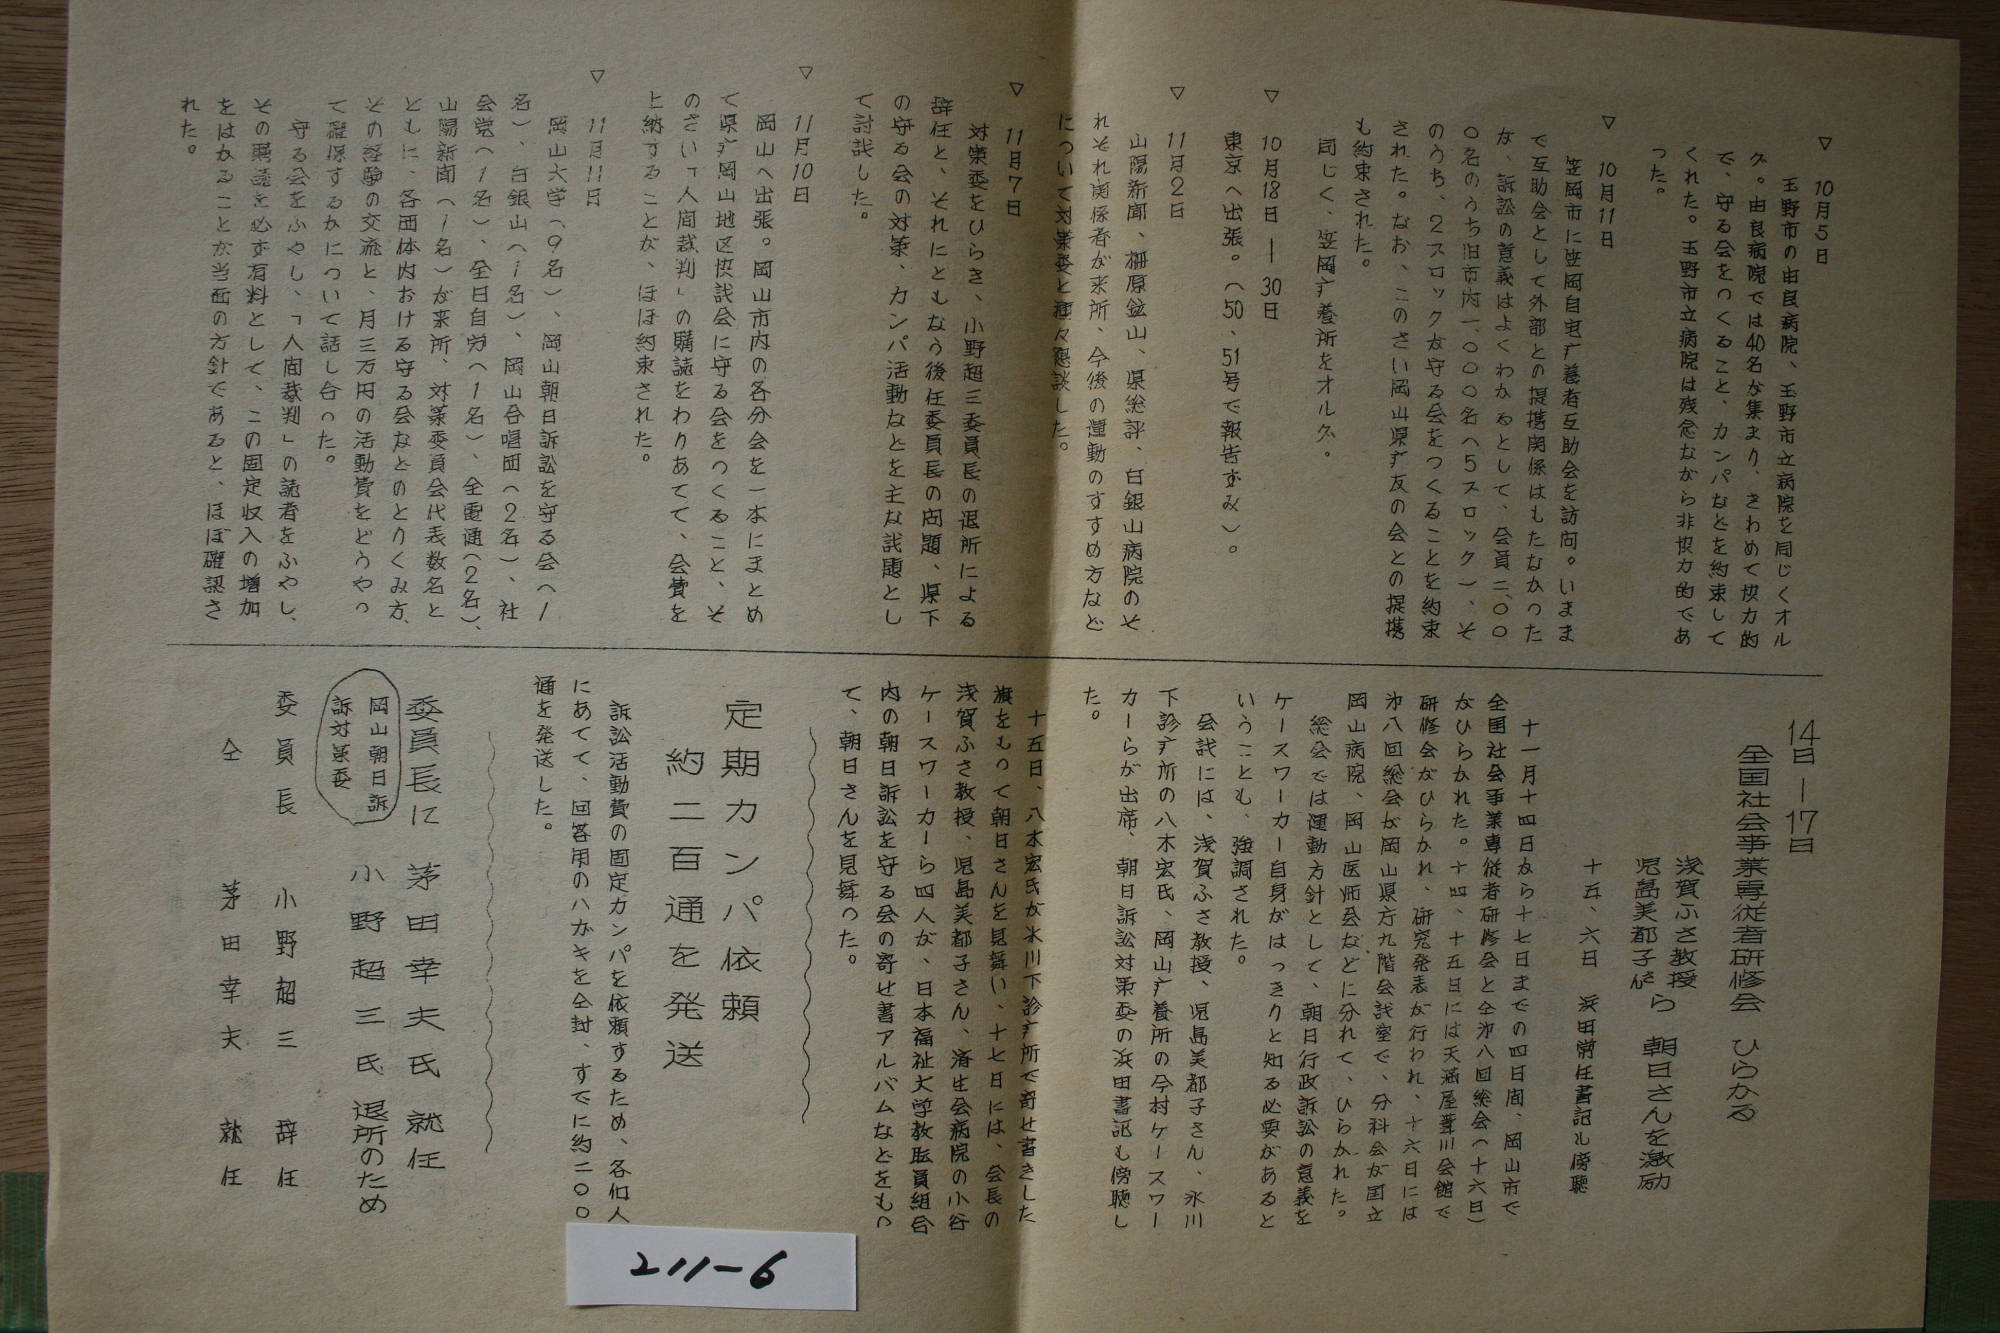 ▽ 10月5日
玉野市の由良病院、玉野市立病院を同じくオル
グ。由良病院では40名が集まり、きわめて協力的
で、守る会をつくること、カンパなどを約束して
くれた。玉野市立病院は残念ながら非協力的であ
った。
▽ 10月11日
笠岡市に笠岡自宅疒養者互助会を訪问。いまま
で互助会として外部との提携関係はもたなかった
が、訴訟の意義はよくわかるとして、会員二、〇〇
〇名のうち旧市内一、〇〇〇名(5ブロック)、そ
のうち、2ブロックが守る会をつくることを約束
された。なお、このさい岡山県疒友の会との提携
も約束された。
同じく、笠岡疒養所をオルグ。
▽ 10月18日ー30日
東京へ出張。(50、51号で報告ずみ)。
▽ 11月2日
山陽新聞、柵原鉱山、県総評、白銀山病院のそ
れぞれ関係者が来所、今後の運動のすすめ方など
について対策委と種々懇談した。
▽ 11月7日
対策委をひらき、小野超三委員長の退所による
辞任と、それにともなう後任委員長の问題、県下
の守る会の対策、カンパ活動などを主な議題とし
て討議した。
▽ 11月10日
岡山へ出張。岡山市内の各分会を一本にまとめ
て県疒岡山地区協議会に守る会をつくること、そ
のさい「人间裁判」の購読をわりあてて、会費を
上納することが、ほぼ約束された。
▽ 11月11日
岡山大学(9名)、岡山朝日訴訟を守る会(1
名)、白銀山(1名)、岡山合唱団(2名)、社
会党(1名)、全日自労(1名)、全電通(2名)、
山陽新聞(1名)が来所、対策委員会代表数名と
ともに、各団体内おける守る会などのとりくみ方、
その経験の交流と、月三万円の活動費をどうやっ
て確保するかについて話し合った。
守る会をふやし、「人间裁判」の読者をふやし、
その購読を必ず有料として、この固定収入の増加
をはかることが当面の方針であると、ほぼ確認さ
れた。
14日ー17日
全国社会事業専従者研修会 ひらかる
浅賀ふさ教授
児島美都子さんら 朝日さんを激励
十五、六日 浜田常任書記も傍聴
十一月十四日から十七日までの四日间、岡山市で
全国社会事業専従者研修会と仝㐧八回総会(十六日)
がひらかれた。十四、十五日には天満屋葦川会館で
研修会がひらかれ、研究発表が行われ、十六日には
㐧八回総会が岡山県庁九階会議室で、分科会が国立
岡山病院、岡山医師会などに分れて、ひらかれた。
総会では運動方針として、朝日行政訴訟の意義を
ケースワーカー自身がはっきりと知る必要があると
いうことも、強調された。
会議には、浅賀ふさ教授、児島美都子さん、氷川
下診疒所の八木宏氏、岡山疒養所の今村ケースワー
カーらが出席、朝日訴訟対策委の浜田書記も傍聴し
た。
十五日、八木宏氏が氷川下診疒所で寄せ書きした
旗をもって朝日さんを見舞い、十七日には、会長の
浅賀ふさ教授、児島美都子さん、済生会病院の小谷
ケースワーカーら四人が、日本福祉大学教职員組合
内の朝日訴訟を守る会の寄せ書アルバムなどをもっ
て、朝日さんを見舞った。
定期カンパ依頼
約二百通を発送
訴訟活動費の固定カンパを依頼するため、各個人
にあてて、回答用のハガキを仝封、すでに約二〇〇
通を発送した。
委員長に 茅田幸夫氏 就任
小野超三氏 退所のため
岡山朝日訴
訴対策委
委員長 小野超三 辞任
仝 茅田幸夫 就任
211-6